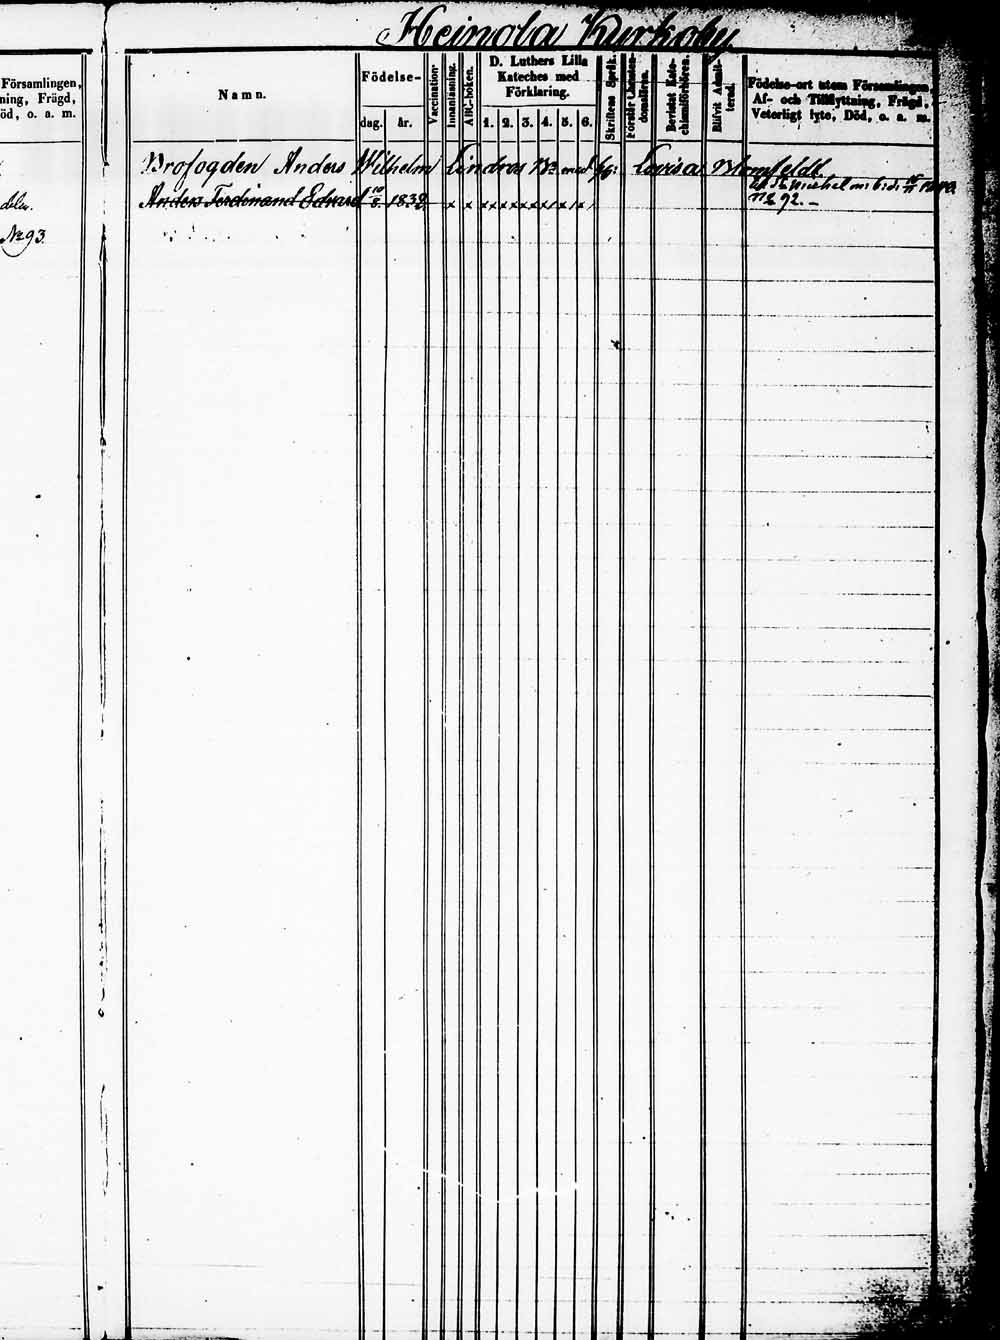 Heinola Kyrkoby.
Församlingen,
ning, Frägd,
öd, o. a. m.
Namn.
Födelse-
dag. år.
Vaccination
Innanläsning.
ABC-boken.
D. Luthers Lilla
Kateches med
Förklaring.
1. 2. 3. 4. 5. 6.
Skriftens Språk.
Bevistat Kate-
chismiförhören.
Blifvit Admit-
terad.
Födelse-ort utom Församlingen,
Af- och Tillflyttning, Frägd,
Veterligt lyte, Död, o. a. m.
Brofogden Anders Wilhelm Lindros med Lovisa Blomfeldt
Anders Ferdinand Edvard 10/2 1839 x x x x x x x x x x
St Michel
No 92.
No 93.